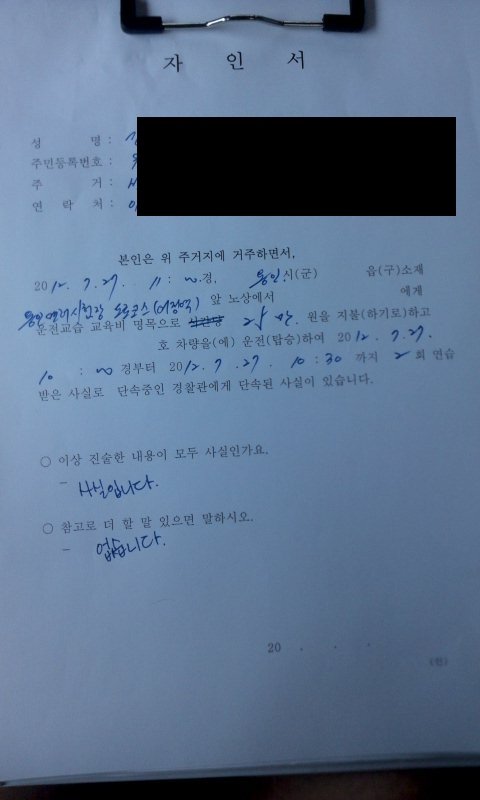 자 인 서
성 명 :
주민등록번호 :
주 거 :
연 락 처 :
본인은 위 주거지에 거주하면서,
2012. 7. 27. 11 : 00 경, 용인시(군) 읍(구)소재
용인면허시험장 도로코스(어정역) 앞 노상에서 에게
운전교습 교육비 명목으로 시간당 25만 원을 지불(하기로)하고
호 차량을(에) 운전(탑승)하여 2012. 7. 27.
10 : 00 경부터 2012. 7. 27. 10 : 30 까지 2회 연습
받은 사실로 단속중인 경찰관에게 단속된 사실이 있습니다.
○ 이상 진술한 내용이 모두 사실인가요.
- 사실입니다.
○ 참고로 더 할 말 있으면 말하시오.
- 없습니다.
20 . . .
(인)